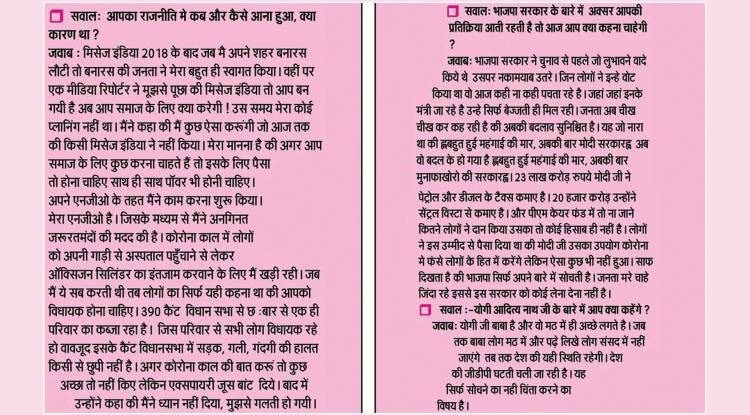 सवाल: आपका राजनीति मे कब और कैसे आना हुआ, क्या
कारण था ?
जवाब : मिसेज इंडिया 2018 के बाद जब मै अपने शहर बनारस
लौटी तो बनारस की जनता ने मेरा बहुत ही स्वागत किया। वहीं पर
एक मीडिया रिपोर्टर ने मूझसे पूछा की मिसेज इंडिया तो आप बन
गयी है अब आप समाज के लिए क्या करेगी ! उस समय मेरा कोई
प्लानिंग नहीं था। मैंने कहा की मैं कुछ ऐसा करूंगी जो आज तक
की किसी मिसेज इंडिया ने नहीं किया। मेरा मानना है की अगर आप
समाज के लिए कुछ करना चाहते हैं तो इसके लिए पैसा
तो होना चाहिए साथ ही साथ पॉवर भी होनी चाहिए।
अपने एनजीओ के तहत मैंने काम करना शुरू किया।
मेरा एनजीओ है। जिसके मध्यम से मैंने अनगिनत
जरूरतमंदों की मदद की है। कोरोना काल में लोगों
को अपनी गाड़ी से अस्पताल पहुँचाने से लेकर
ऑक्सिजन सिलिंडर का इंतजाम करवाने के लिए मैं खड़ी रही। जब
मैं ये सब करती थी तब लोगों का सिर्फ यही कहना था की आपको
विधायक होना चाहिए। 390 कैंट विधान सभा से छ :बार से एक ही
परिवार का कब्जा रहा है। जिस परिवार से सभी लोग विधायक रहे
हो वावजूद इसके कैंट विधानसभा में सड़क, गली, गंदगी की हालत
किसी से छुपी नहीं है। अगर कोरोना काल की बात करूं तो कुछ
अच्छा तो नहीं किए लेकिन एक्सपायरी जूस बांट दिये। बाद में
उन्होंने कहा की मैंने ध्यान नहीं दिया, मुझसे गलती हो गयी।
सवाल: भाजपा सरकार के बारे में अक्सर आपकी
प्रतिक्रिया आती रहती है तो आज आप क्या कहना चाहेगी
?
जवाब: भाजपा सरकार ने चुनाव से पहले जो लुभावने वादे
किये थे उसपर नकामयाब उतरे। जिन लोगों ने इन्हे वोट
किया था वो आज कही ना कही पचता रहे है। जहां जहां इनके
मंत्री जा रहे है उन्हे सिर्फ बेज्जती ही मिल रही। जनता अब चीख
चीख कर कह रही है की अबकी बदलाव सुनिश्चित है। यह जो नारा
था की ह्नबहुत हुई महंगाई की मार, अबकी बार मोदी सरकारह्न अब
वो बदल के हो गया है ह्नबहुत हुई महंगाई की मार, अबकी बार
मुनाफाखोरो की सरकारह्न। 23 लाख करोड़ रुपये मोदी जी ने
पेट्रोल और डीजल के टैक्स कमाए है। 20 हजार करोड़ उन्होंने
सेंट्रल विस्टा से कमाए है। और पीएम केयर फंड में तो ना जाने
कितने लोगों ने दान किया उसका तो कोई हिसाब ही नहीं है। लोगों
ने इस उम्मीद से पैसा दिया था की मोदी जी उसका उपयोग कोरोना
मे फंसे लोगों के हित में करेंगे लेकिन ऐसा कुछ भी नहीं हुआ। साफ
दिखता है की भाजपा सिर्फ अपने बारे में सोचती है। जनता मरे चाहे
जिंदा रहे इससे इस सरकार को कोई लेना देना नहीं है।
सवाल :-योगी आदित्य नाथ जी के बारे में आप क्या कहेंगे ?
जवाब: योगी जी बाबा है और वो मठ में ही अच्छे लगते है। जब
तक बाबा लोग मठ में और पढ़े लिखे लोग संसद में नहीं
जाएंगे तब तक देश की यही स्थिति रहेगी। देश
की जीडीपी घटती चली जा रही है। यह
सिर्फ सोचने का नही चिंता करने का
विषय है।